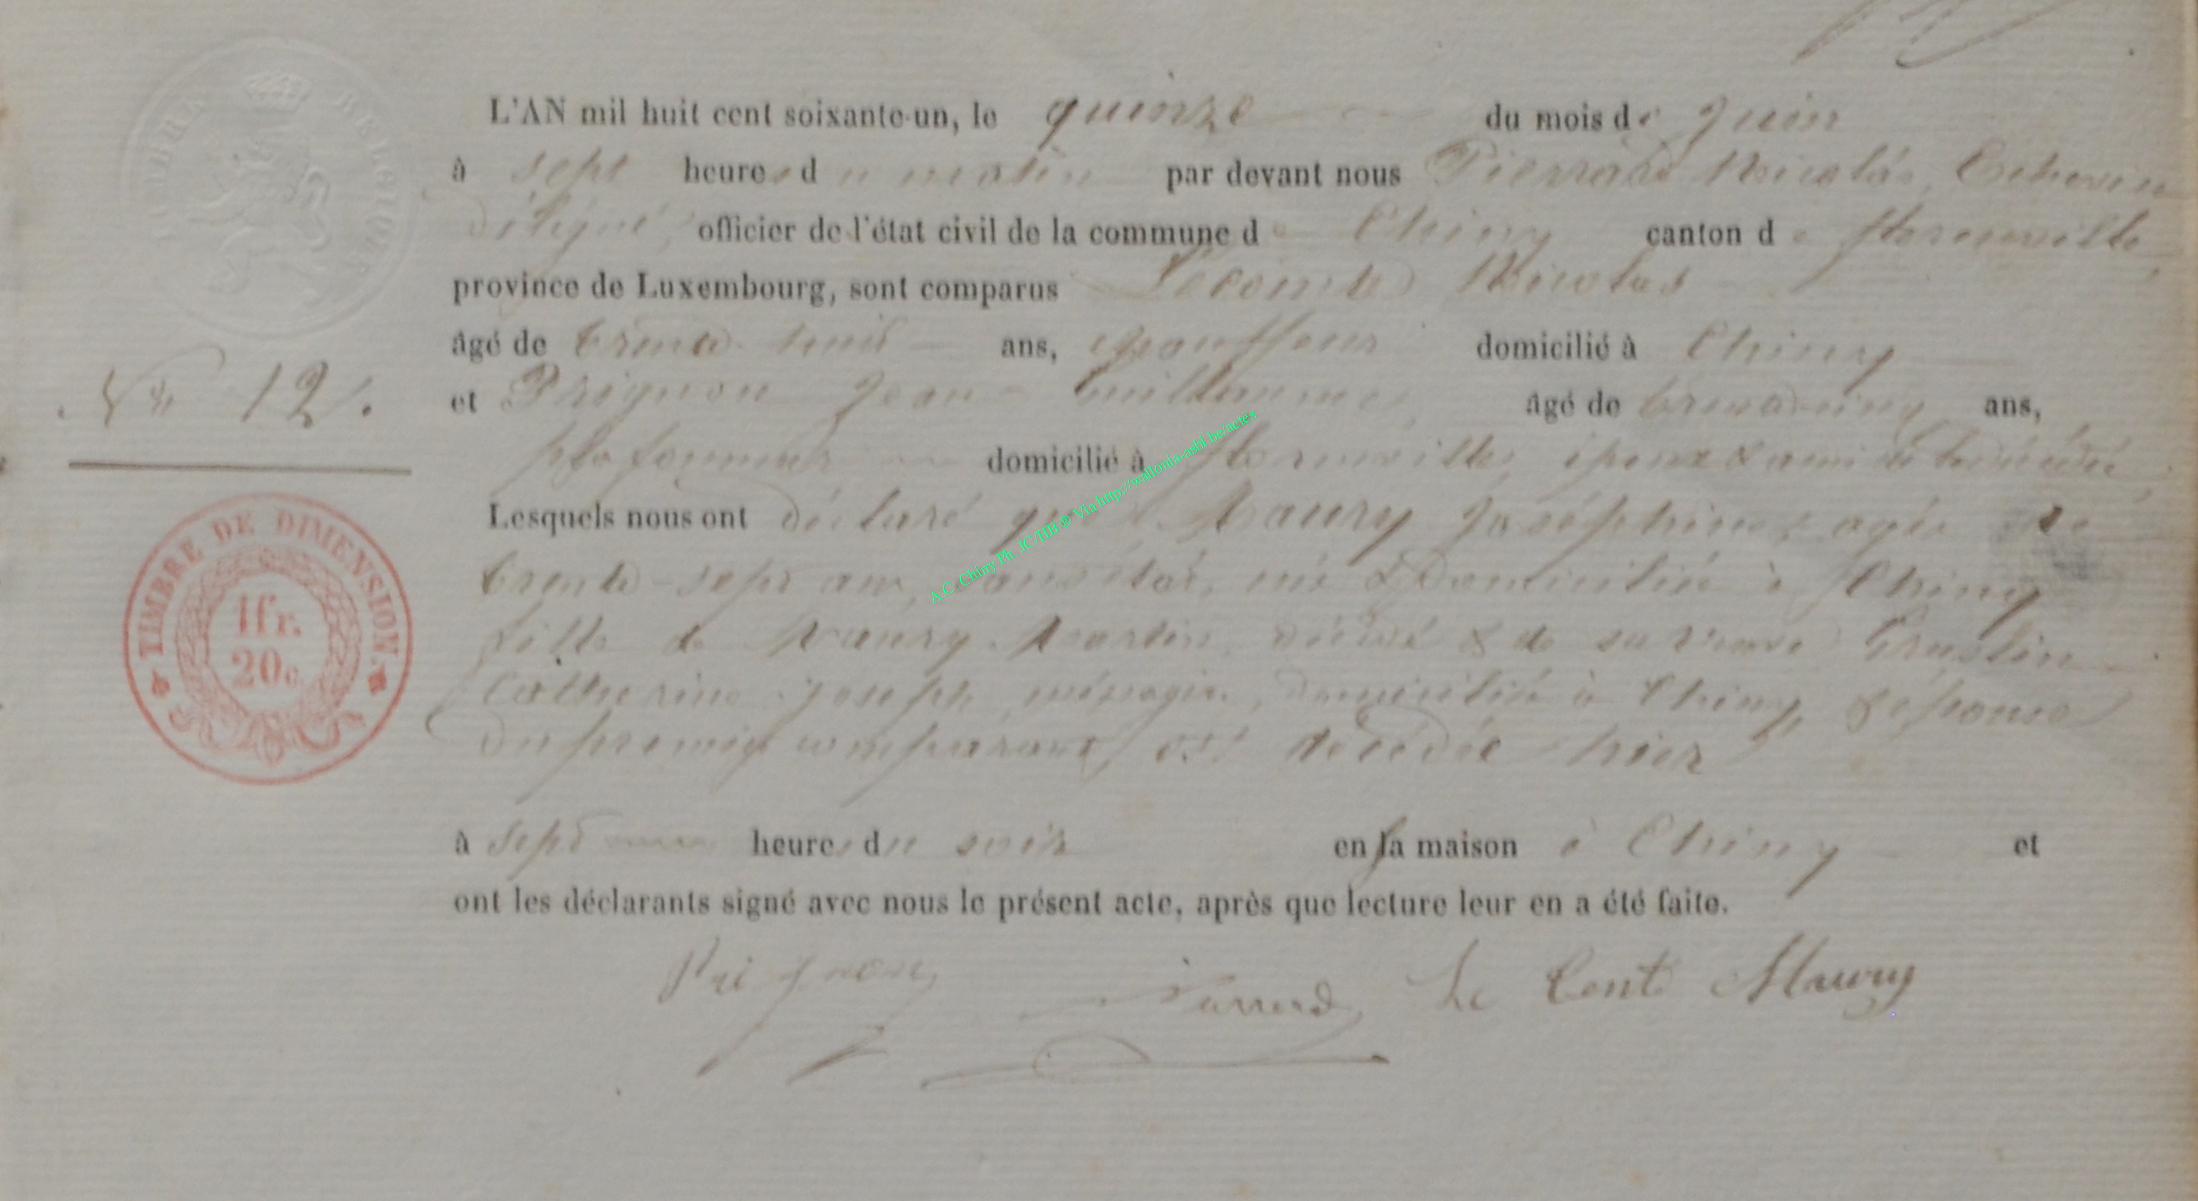 L'AN mil huit cent soixante-un, le quinze du mois de Juin
à sept heures du matin par devant nous Pierrard Nicolas, Echevin
délégué, officier de l'état civil de la commune de Chiny canton de florenville,
province de Luxembourg, sont comparus Lecomte Nicolas
âgé de trente huit ans, domicilié à Chiny
et Prignon Jean Guillaume, âgé de trente cinq ans,
plafonneur domicilié à florenville, époux & ami de la décédée,
Lesquels nous ont déclaré que Maury Joséphine, agée de
trente-sept ans, sans état, née & domiciliée à Chiny
fille de Maury Martin, décédé & de sa veuve
Catherine Joseph, ménagère, domiciliée à Chiny, & épouse
du premier comparant, est décédée hier
à sept heures du soir en sa maison à Chiny et
ont les déclarants signé avec nous le présent acte, après que lecture leur en a été faite.
Prignon Pierrard Le Cont Maury
No 12.
TIMBRE DE DIMENSION.
1fr.
20c
A.C. Chiny Ph. JC/HB © Via http://wallonia-asbl.be/actes